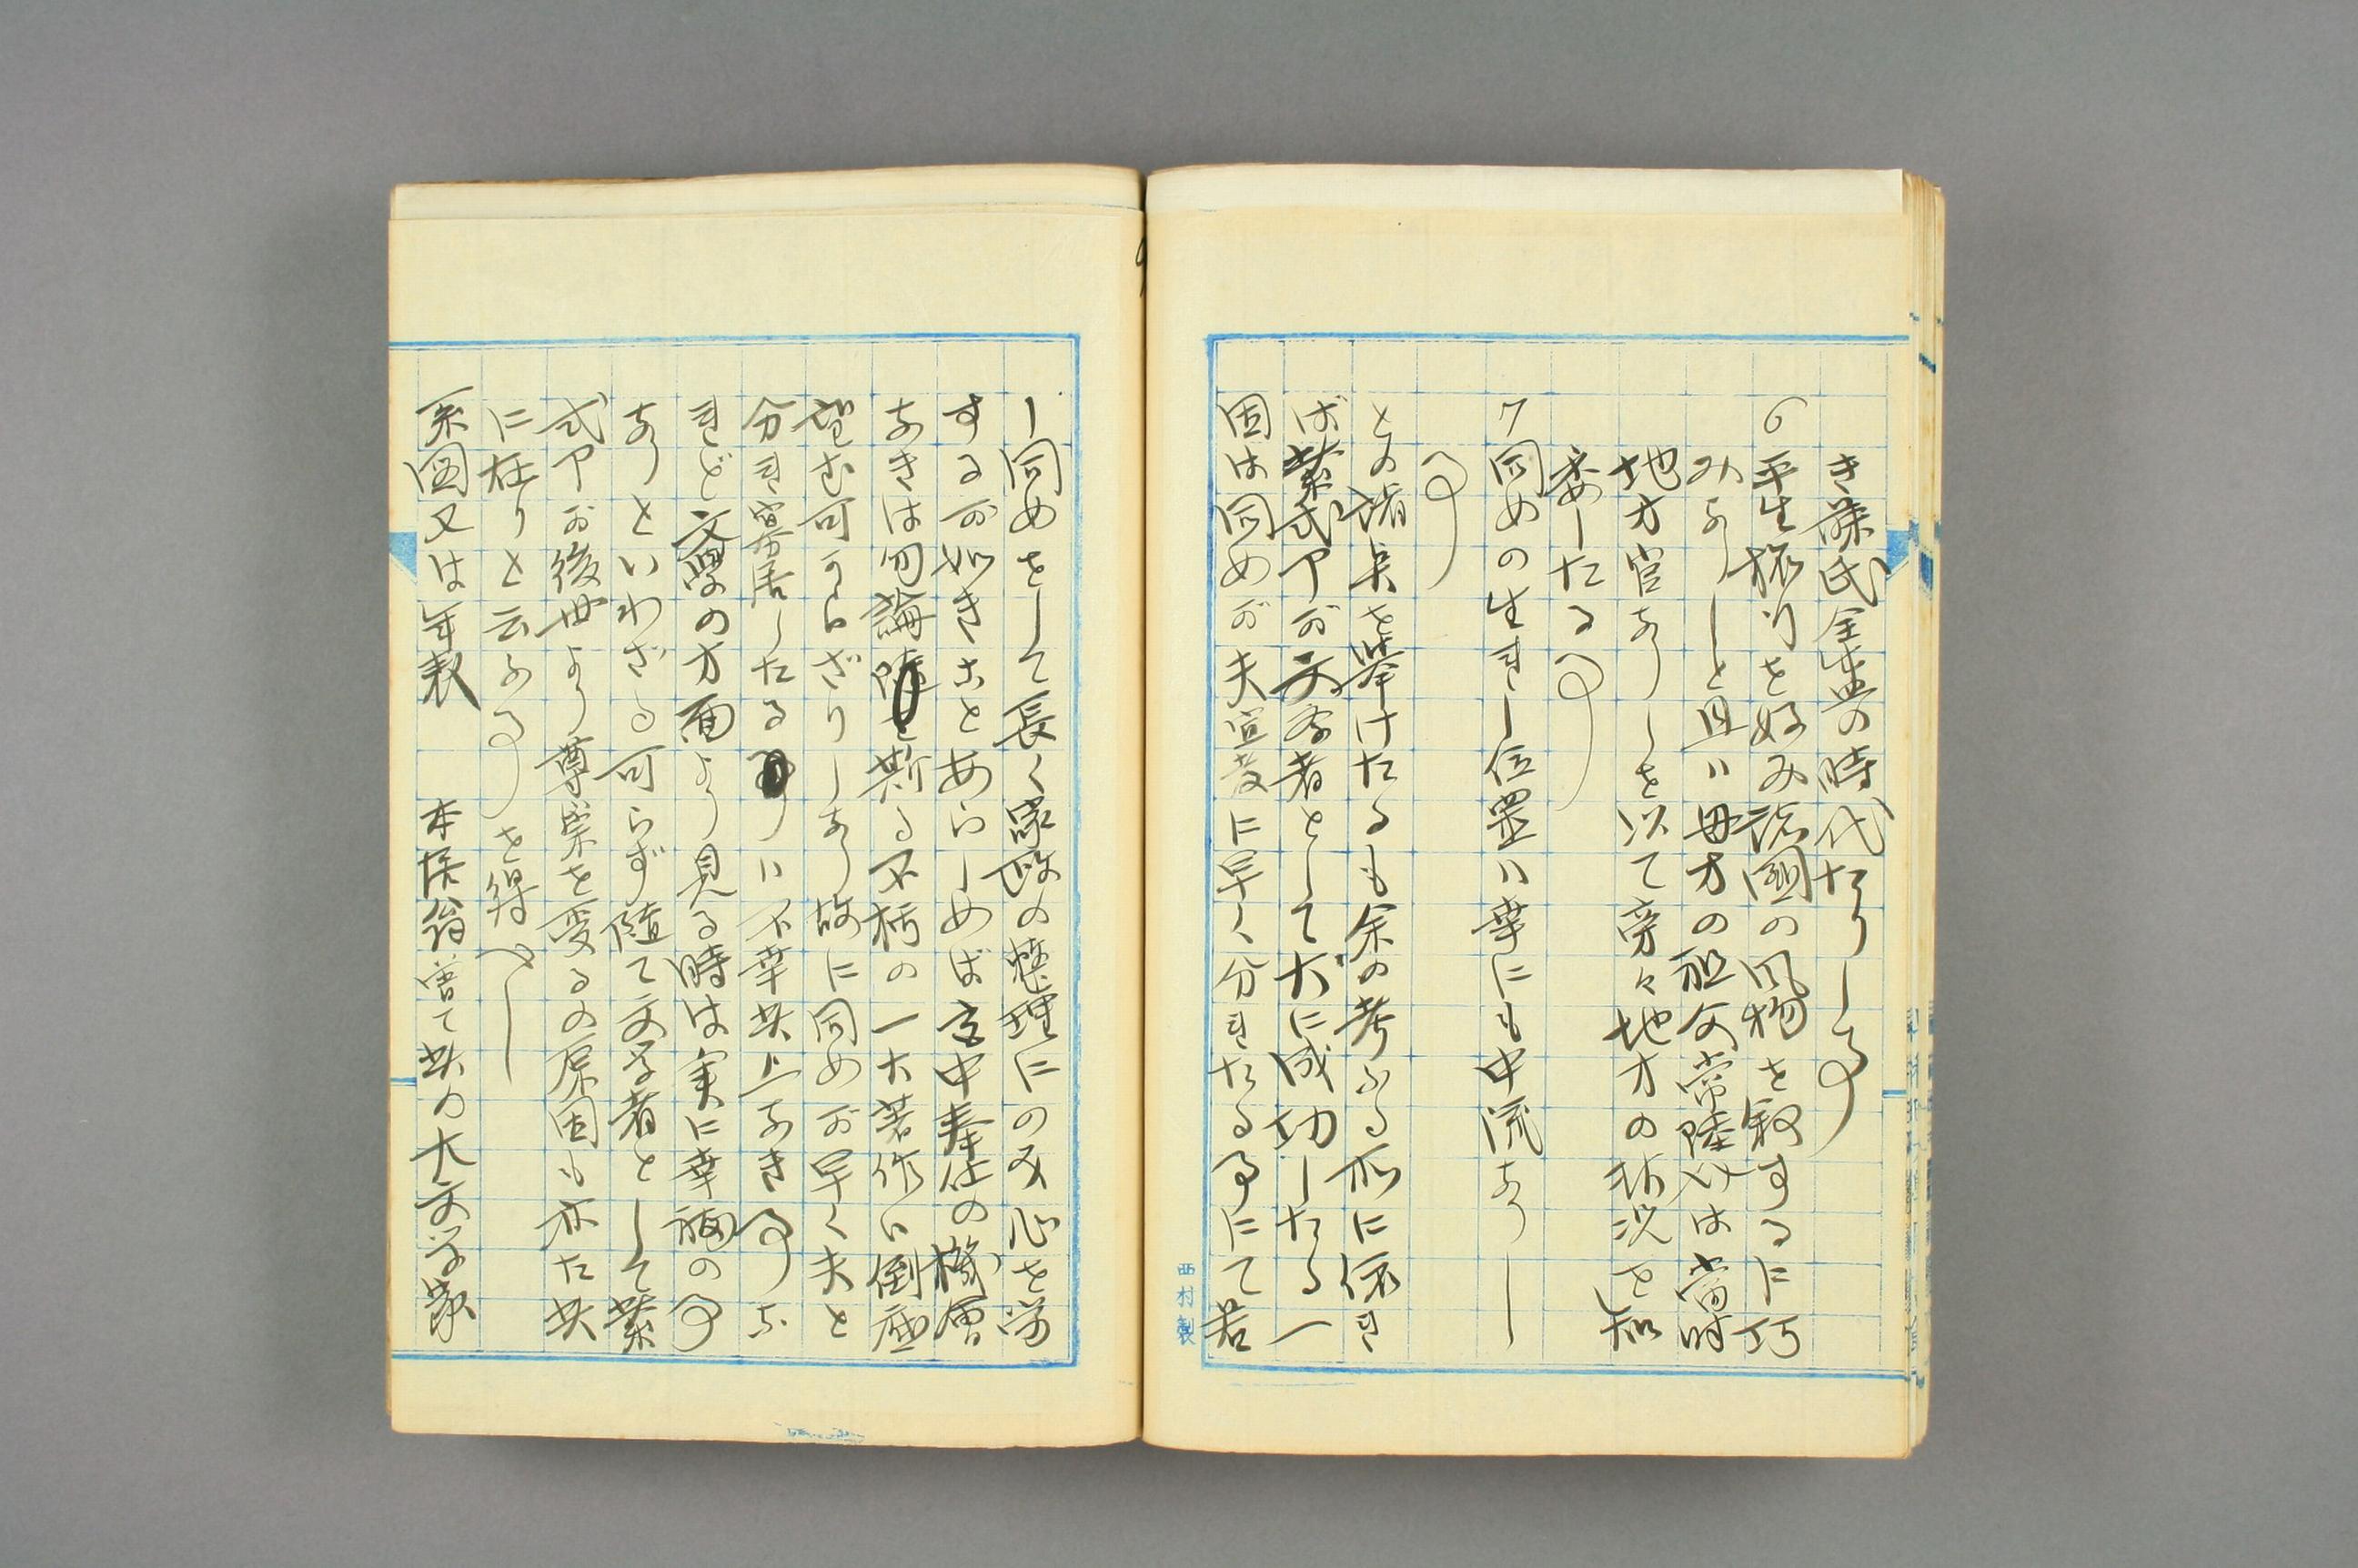 き藤氏全盛の時代たりし事
6 平生旅行を好み諸國の風物を叙するに巧
みなりしと且ハ母方の祖父常陸介は當時
地方官なりしを以て旁々地方の状况を知
悉したる事
7 同めの生れし位置ハ幸にも中流なりし
事
との諸点を挙げたるも余の考ふる所に依れ
ば紫式アが文学者として大に成功したる一
因は同めが夫宣孝に早く分れたる事にて若
し同めをして長く家政の整理にのみ心を労
するが如きことあらしめば宮中奉仕の機會
なきは勿論斯る不朽の一大著作ハ到底
望む可からざりしなり故に同めが早く夫と
分れ寡居したる事ハ不幸此上なき事な
れど文學の方面より見る時は実に幸福の事
なりといわざる可らず随て文学者として紫
式アが後世より尊崇を受るの原因も亦た此
に在りと云ふ事を得べし
系図又は年表 本居翁嘗て此の大文学家
西村製